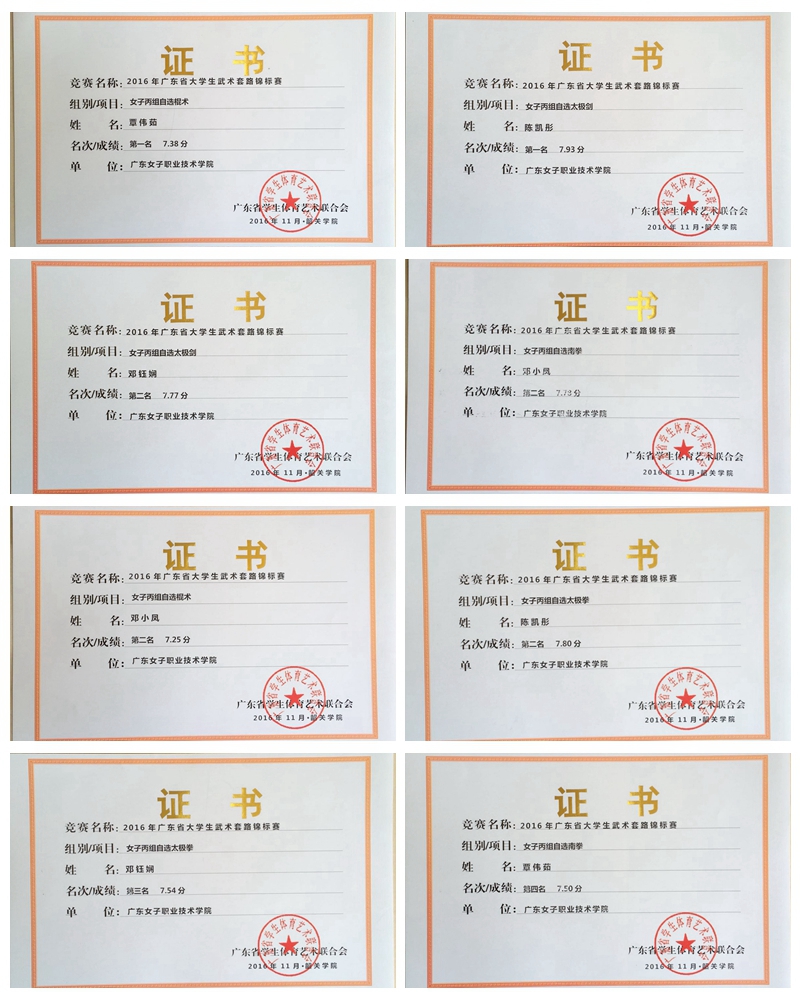 证 书
竞赛名称：2016年广东省大学生武术套路锦标赛
组别/项目：女子丙组自选棍术
姓 名：覃伟茹
名次/成绩：第一名 7.38分
单 位：广东女子职业技术学院
广东省学生体育艺术联合会
广东省学生体育艺术联合会
2016年11月·韶关学院
证 书
竞赛名称：2016年广东省大学生武术套路锦标赛
组别/项目：女子丙组自选太极剑
姓 名：陈凯彤
名次/成绩：第一名 7.93分
单 位：广东女子职业技术学院
广东省学生体育艺术联合会
广东省学生体育艺术联合会
2016年11月·韶关学院
证 书
竞赛名称：2016年广东省大学生武术套路锦标赛
组别/项目：女子丙组自选太极剑
姓 名：邓钰娴
名次/成绩：第二名 7.77分
单 位：广东女子职业技术学院
广东省学生体育艺术联合会
广东省学生体育艺术联合会
2016年11月·韶关学院
证 书
竞赛名称：2016年广东省大学生武术套路锦标赛
组别/项目：女子丙组自选南拳
姓 名：邓小凤
名次/成绩：第二名 分
单 位：广东女子职业技术学院
广东省学生体育艺术联合会
广东省学生体育艺术联合会
2016年11月·韶关学院
证 书
竞赛名称：2016年广东省大学生武术套路锦标赛
组别/项目：女子丙组自选棍术
姓 名：邓小凤
名次/成绩：第二名 7.25分
单 位：广东女子职业技术学院
广东省学生体育艺术联合会
广东省学生体育艺术联合会
2016年11月·韶关学院
证 书
竞赛名称：2016年广东省大学生武术套路锦标赛
组别/项目：女子丙组自选太极拳
姓 名：陈凯彤
名次/成绩：第二名 7.80分
单 位：广东女子职业技术学院
广东省学生体育艺术联合会
广东省学生体育艺术联合会
2016年11月·韶关学院
证 书
竞赛名称：2016年广东省大学生武术套路锦标赛
组别/项目：女子丙组自选太极拳
姓 名：邓钰娴
名次/成绩：第三名 7.54分
单 位：广东女子职业技术学院
广东省学生体育艺术联合会
广东省学生体育艺术联合会
2016年11月·韶关学院
证 书
竞赛名称：2016年广东省大学生武术套路锦标赛
组别/项目：女子丙组自选南拳
姓 名：覃伟茹
名次/成绩：第四名 7.50分
单 位：广东女子职业技术学院
广东省学生体育艺术联合会
广东省学生体育艺术联合会
2016年11月·韶关学院